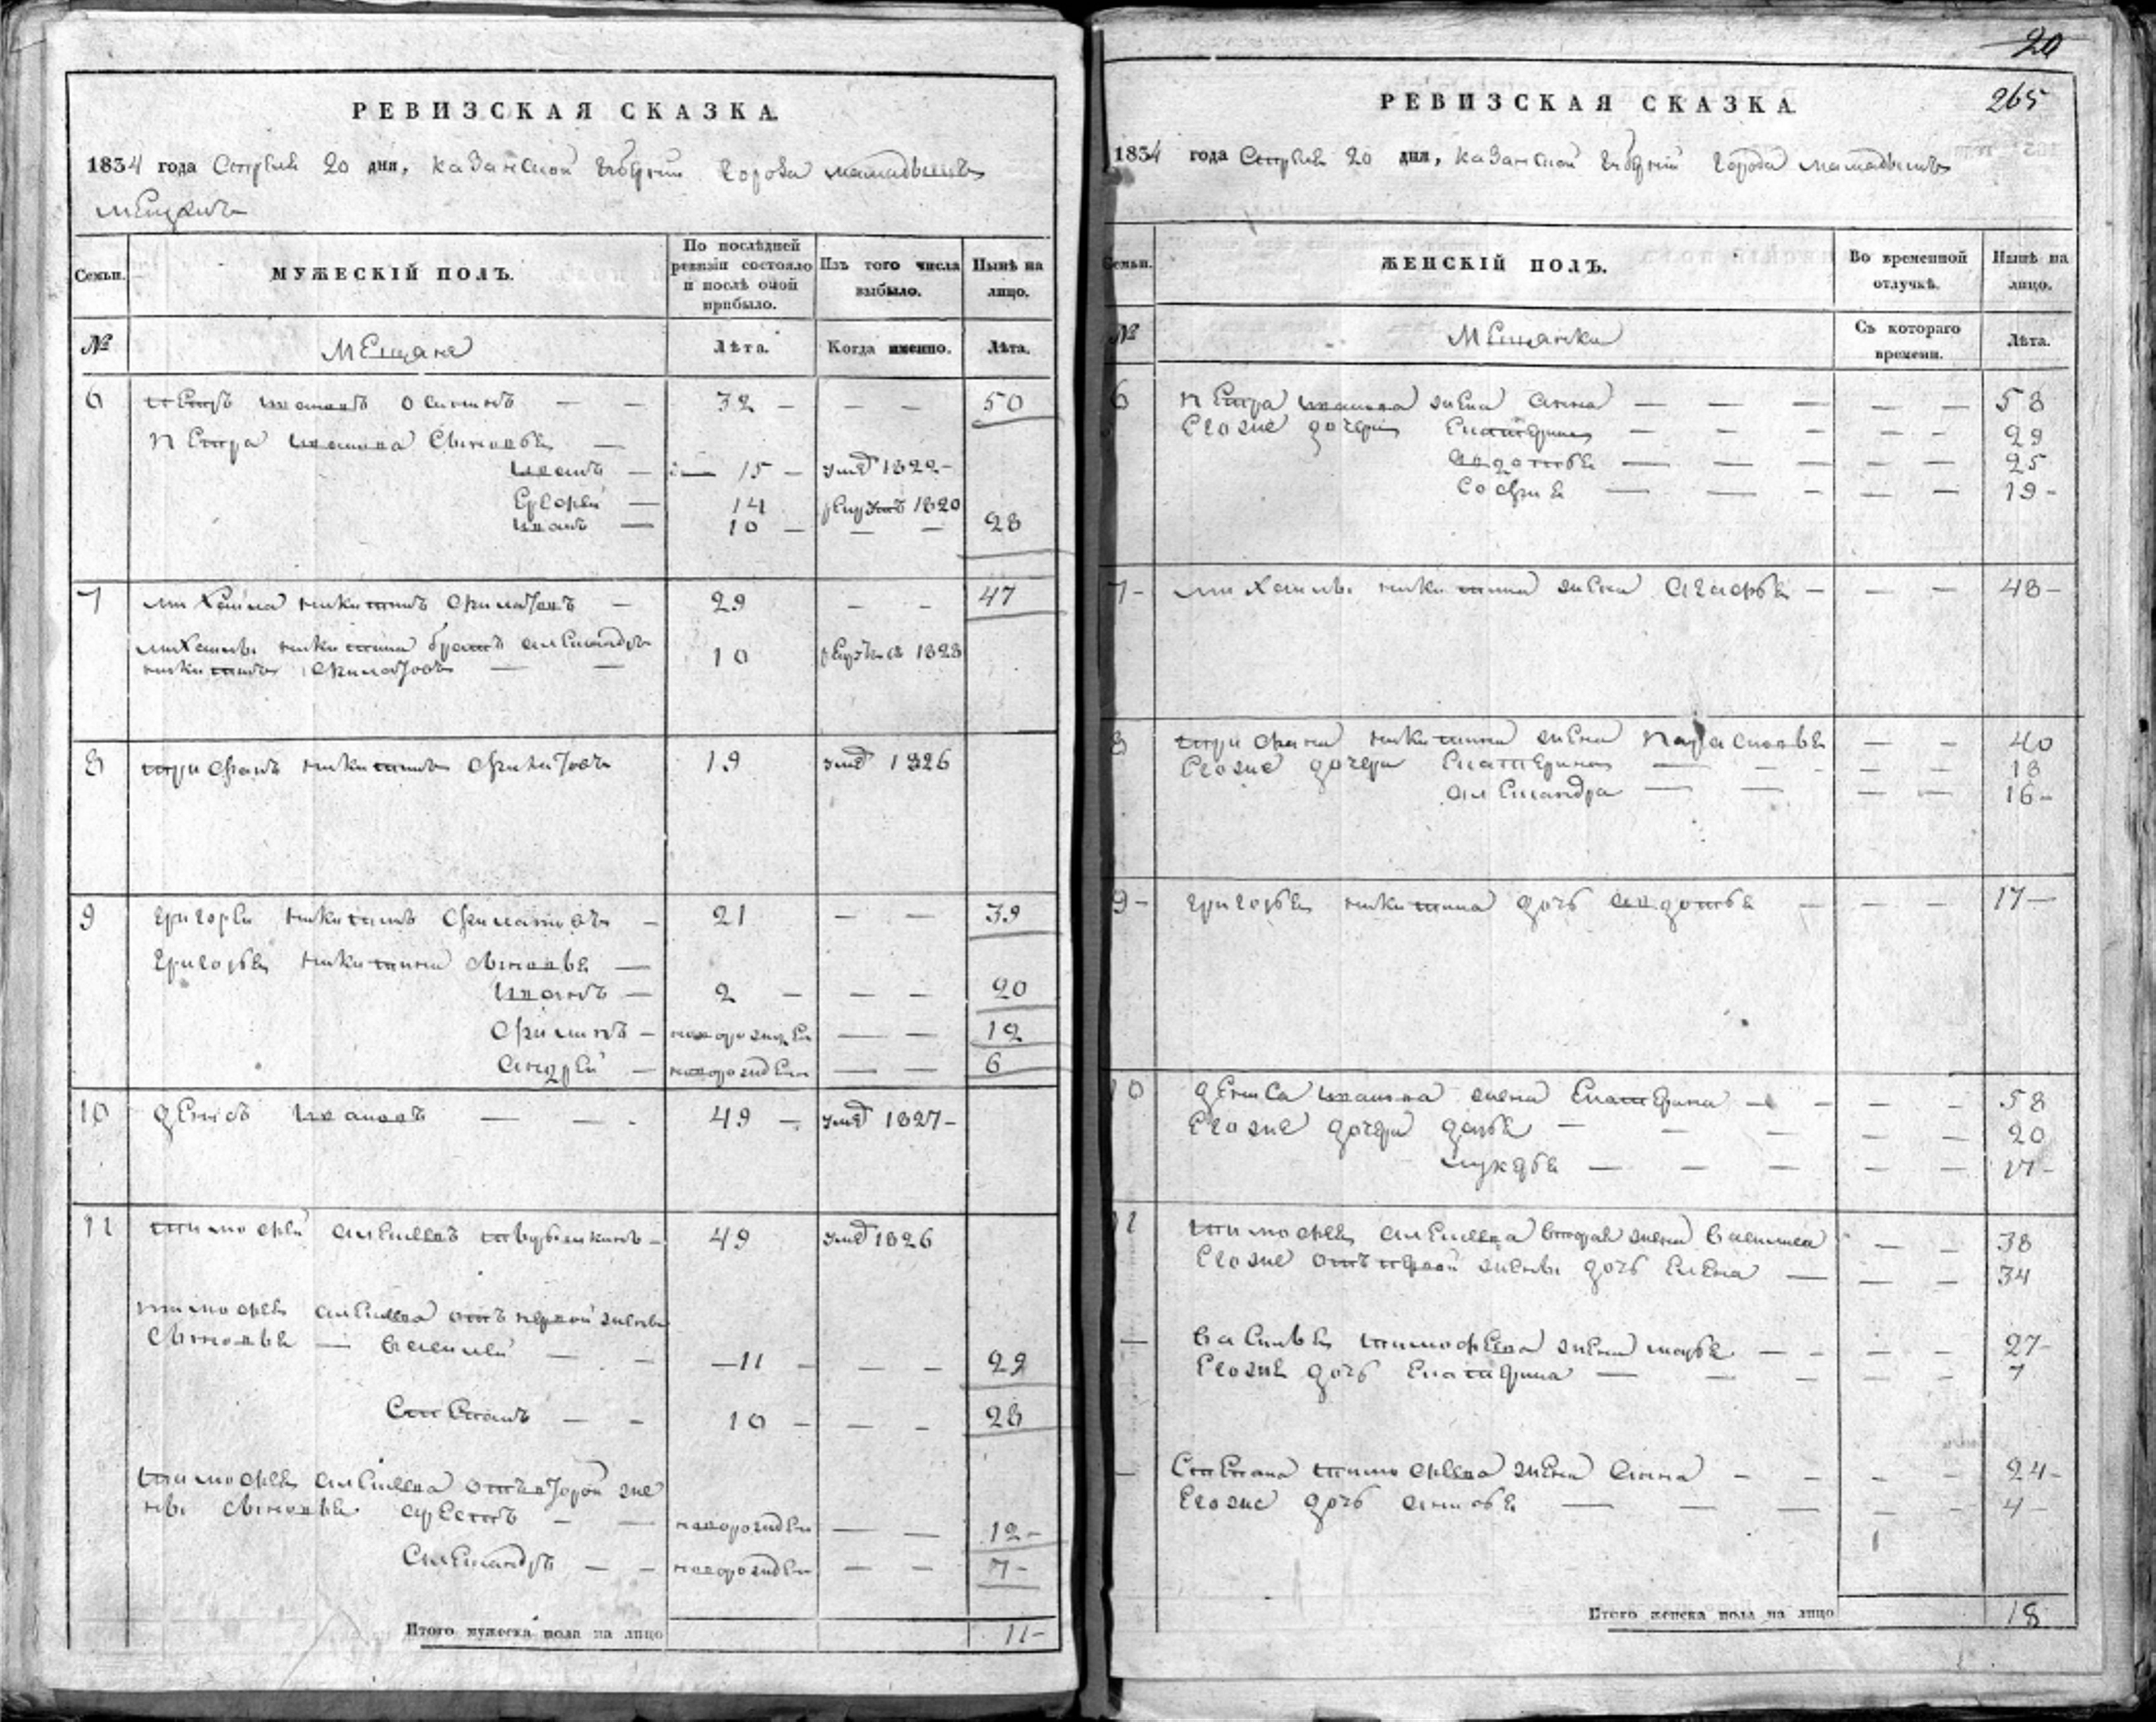 РЕВИЗСКАЯ СКАЗКА.
1834 года Апреля 20 дня, Казанской губернии города Мамадыша
мещанъ
Семьи.
МУЖЕСКІЙ ПОЛЪ.
По послѣдней ревизіи состояло и послѣ оной прибыло.
Изъ того числа выбыло.
Нынѣ на лицо.
№
Мещане
Лѣта.
Когда именно.
Лѣта.
6 Петръ Ивановъ Осиповъ — — 32 — — — 50
Петра Иванова сыновья —
Иванъ — 15 — умеръ 1822 —
Егоръ — 14 1820
Иванъ — 10 — — — 28
7 Михайла Никитинъ Филатовъ — 29 — — 47
Михайлы Никитина братъ Александръ
Никитинъ Филатовъ — — 10 1828
8 Трифонъ Никитинъ Филатовъ 19 умеръ 1826
9 Григорей Никитинъ Филатовъ — 21 — — 39
Григорья Никитина сыновья —
Иванъ — 2 — — — 20
Филипъ — новорожден — — 12
Андрей — новорожден — — 6
10 Денисъ Ивановъ — — - 49 — умеръ 1827 —
11 Тимофей Алексеевъ — 49 умеръ 1826
Тимофея Алексеева отъ первой жены
сыновья — Василей — - —11 — — — 29
Степанъ — - 10 — — - 28
Тимофея Алексеева отъ второй же
ны сыновья — — новорожден — — 12 -
Александръ — — новорожден — — 7 -
Итого мужеска пола на лицо 11 -
20
265
РЕВИЗСКАЯ СКАЗКА
1834 года Апреля 20 дня, Казанской губернии города Мамадыша
Семьи.
ЖЕНСКІЙ ПОЛЪ.
Во временной отлучкѣ.
Нынѣ на лицо.
№
Мещанки
Съ котораго времени.
Лѣта.
6 Петра Иванова жена Анна — — — — — 58
Его же дочери Екатерина — — — — — 29
Авдотья — — — — — 25
Софья — — - — — 19 -
7 - Михайлы Никитина жена Агафья — — — 48 -
8 Трифона Никитина жена Парасковья — — 40
Его же дочери Екатерина — — - — — 18
Александра — — — — 16 -
9 - Григорья Никитина дочь Авдотья — — — 17 —
10 Дениса Иванова жена Екатерина — — — — 58
Его же дочери Дарья — — — — — 20
Лукерья — — — — — 17 -
11 Тимофея Алексеева вторая жена Василиса — — 38
Его же отъ первой жены дочь Елена — — — 34
— Василья Тимофеева жена Марья — - — — 27 -
Его же дочь Екатерина — — — — — 7
— Степана Тимофеева жена Анна - — - - — 24 -
Его же дочь — — — - — 4 -
Итого женска пола на лицо 18